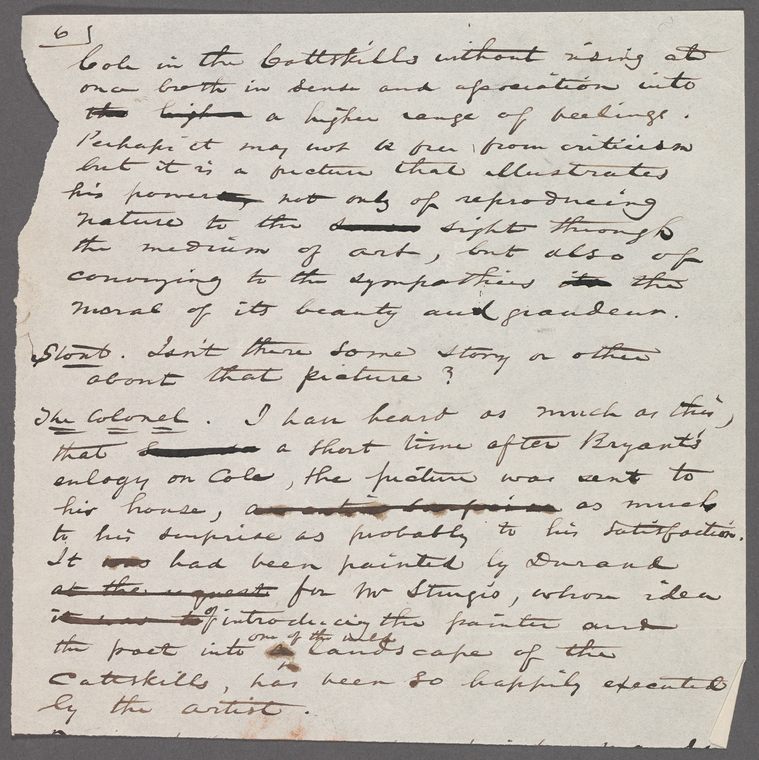 6
Cole in the Cattskills without rising at
once both in sense and association into
the higher a higher range of feelings.
Perhaps it may not be free from criticism
but it is a picture that illustrates
his powers not only of reproducing
nature to the sight through
the medium of art, but also of
conveying to the sympathies its the
moral of its beauty and grandeur.
Stout. Isn't there some story or other
about that picture?
The Colonel. I have heard as much as this,
that a short time after Bryant's
eulogy on Cole, the picture was sent to
his house, as much
to his surprise as probably to his satisfaction.
It was had been painted by Durand
at the request for Mr Sturgis, whose idea
it was to of introducing the painter and
one of the wild
the poet into a landscape of the
Cattskills, has been so happily executed
by the artist.